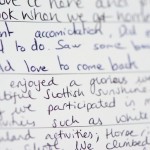 here and
look when we get hom
ent accomidation, Did e
d to do. Saw some boa
ld love to come back
enjoyed a glorious se
utiful Scottish sunshine
we participated in
ities such as while
land activities, Horse
we climbed